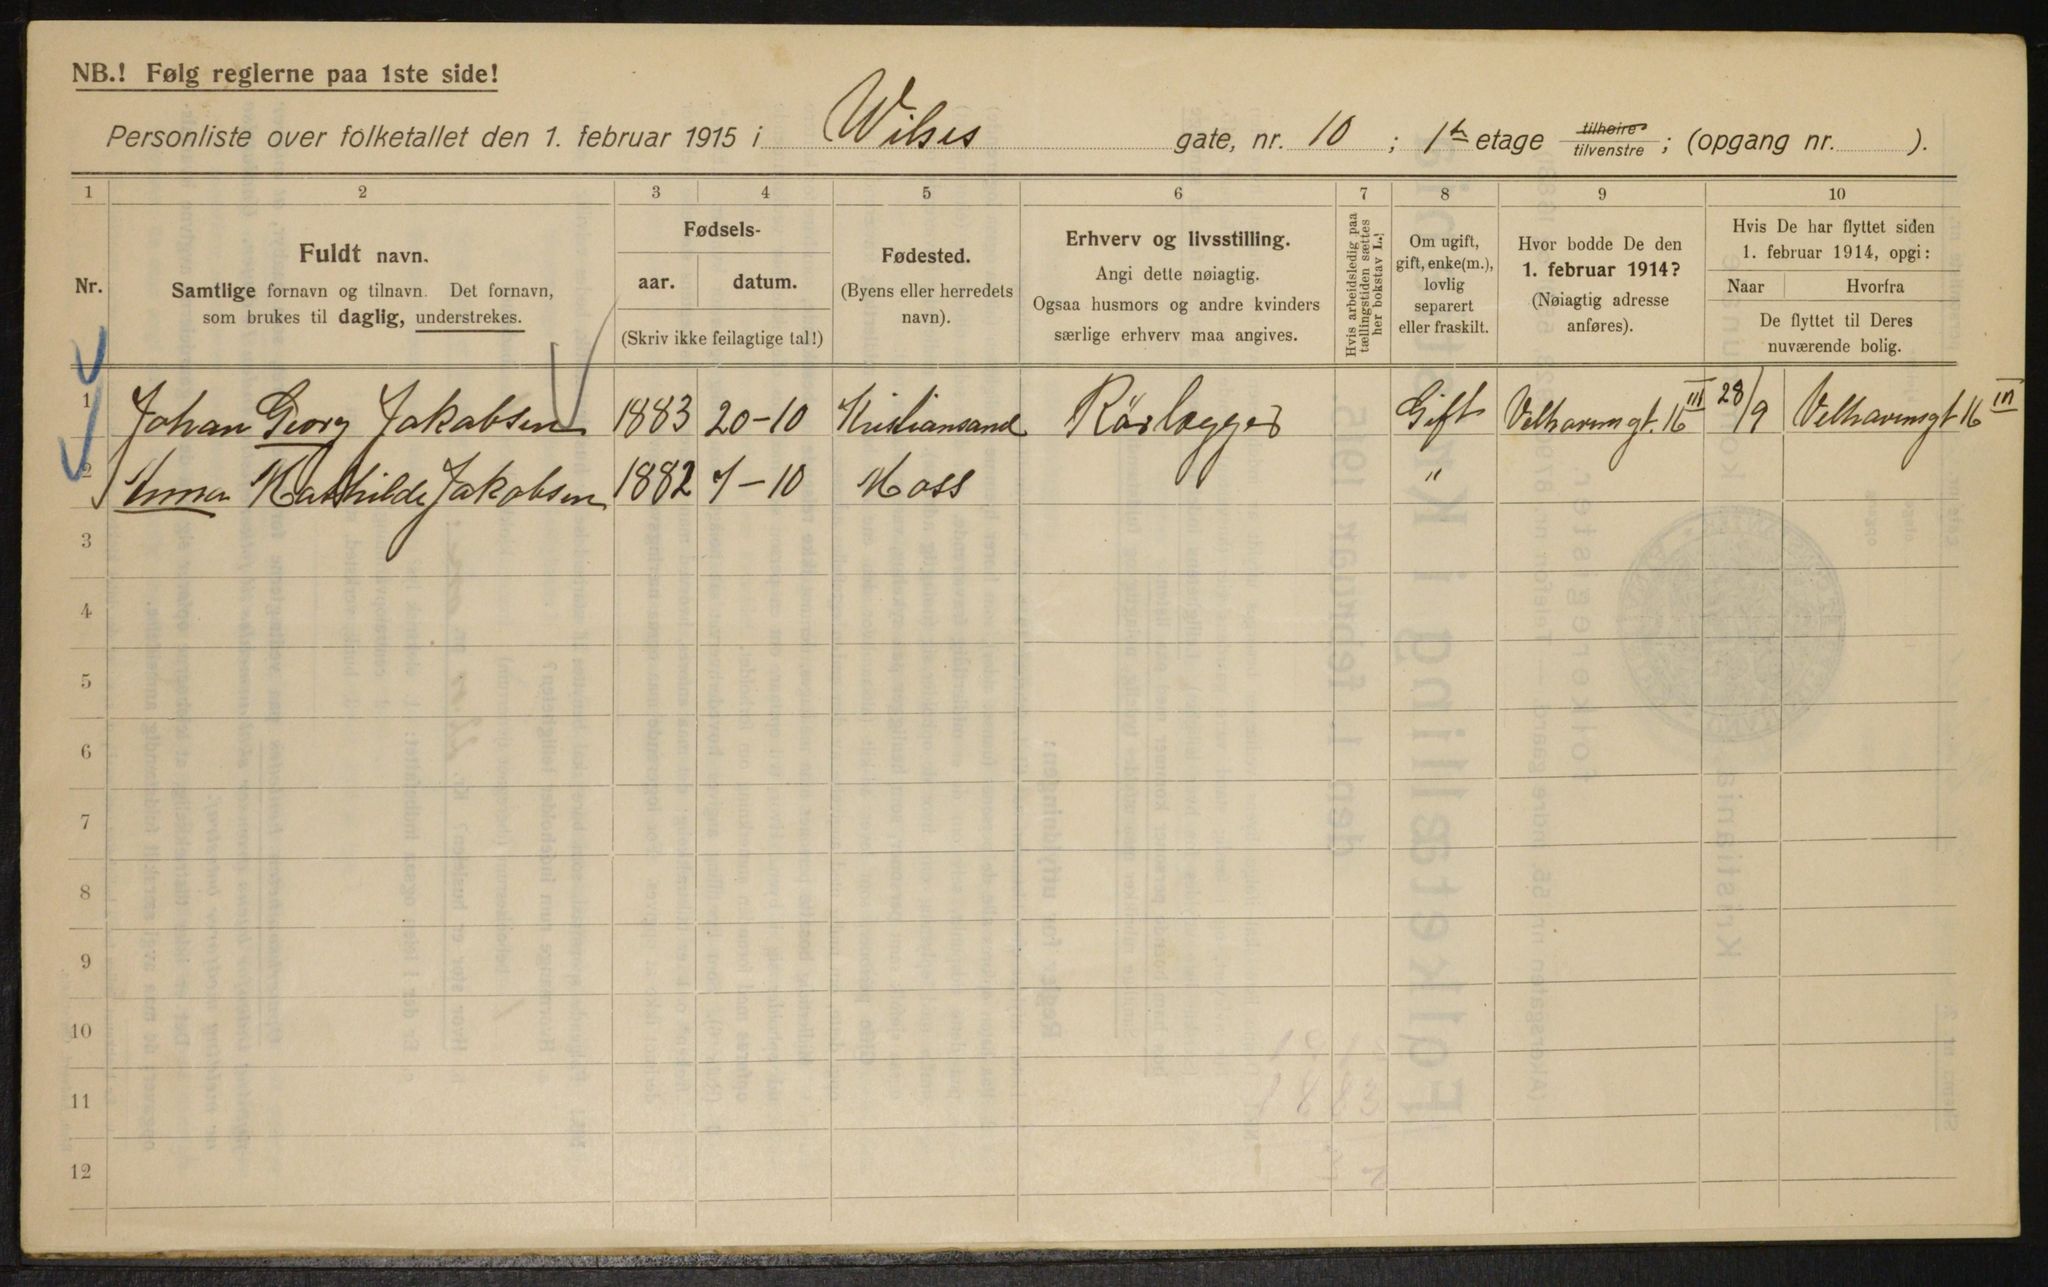 NB.! Følg reglerne paa 1ste side!
Personliste over folketallet den 1. februar 1915 i Wilses gate, nr. 10 ; 1ste etage tilhøire tilvenstre ; (opgang nr. ).
1 2 3 4 5 6 7 8 9 10
Nr.
Fuldt navn.
Samtlige fornavn og tilnavn. Det fornavn,
som brukes til daglig, understrekes.
Fødsels-
aar. datum.
(Skriv ikke feilagtige tal!)
Fødested.
(Byens eller herredets
navn).
Erhverv og livsstilling.
Angi dette nøiagtig.
Ogsaa husmors og andre kvinders
særlige erhverv maa angives.
Hvis arbeidsledig paa
tællingstiden sættes
her bokstav L.
Om ugift,
gift, enke(m.),
lovlig
separert
eller fraskilt.
Hvor bodde De den
1. februar 1914?
(Nøiagtig adresse
anføres).
Hvis De har flyttet siden
1. februar 1914, opgi:
Naar Hvorfra
De flyttet til Deres
nuværende bolig.
1 Johan Georg Jakobsen 1883 20-10 Kristiansand Rörlægger Gift Velhavensgt. 16 III 28/9 Velhavensgt 16 III
2 Anna Mathilde Jakobsen 1882 7-10 Moss "
3
4
5
6
7
8
9
10
11
12